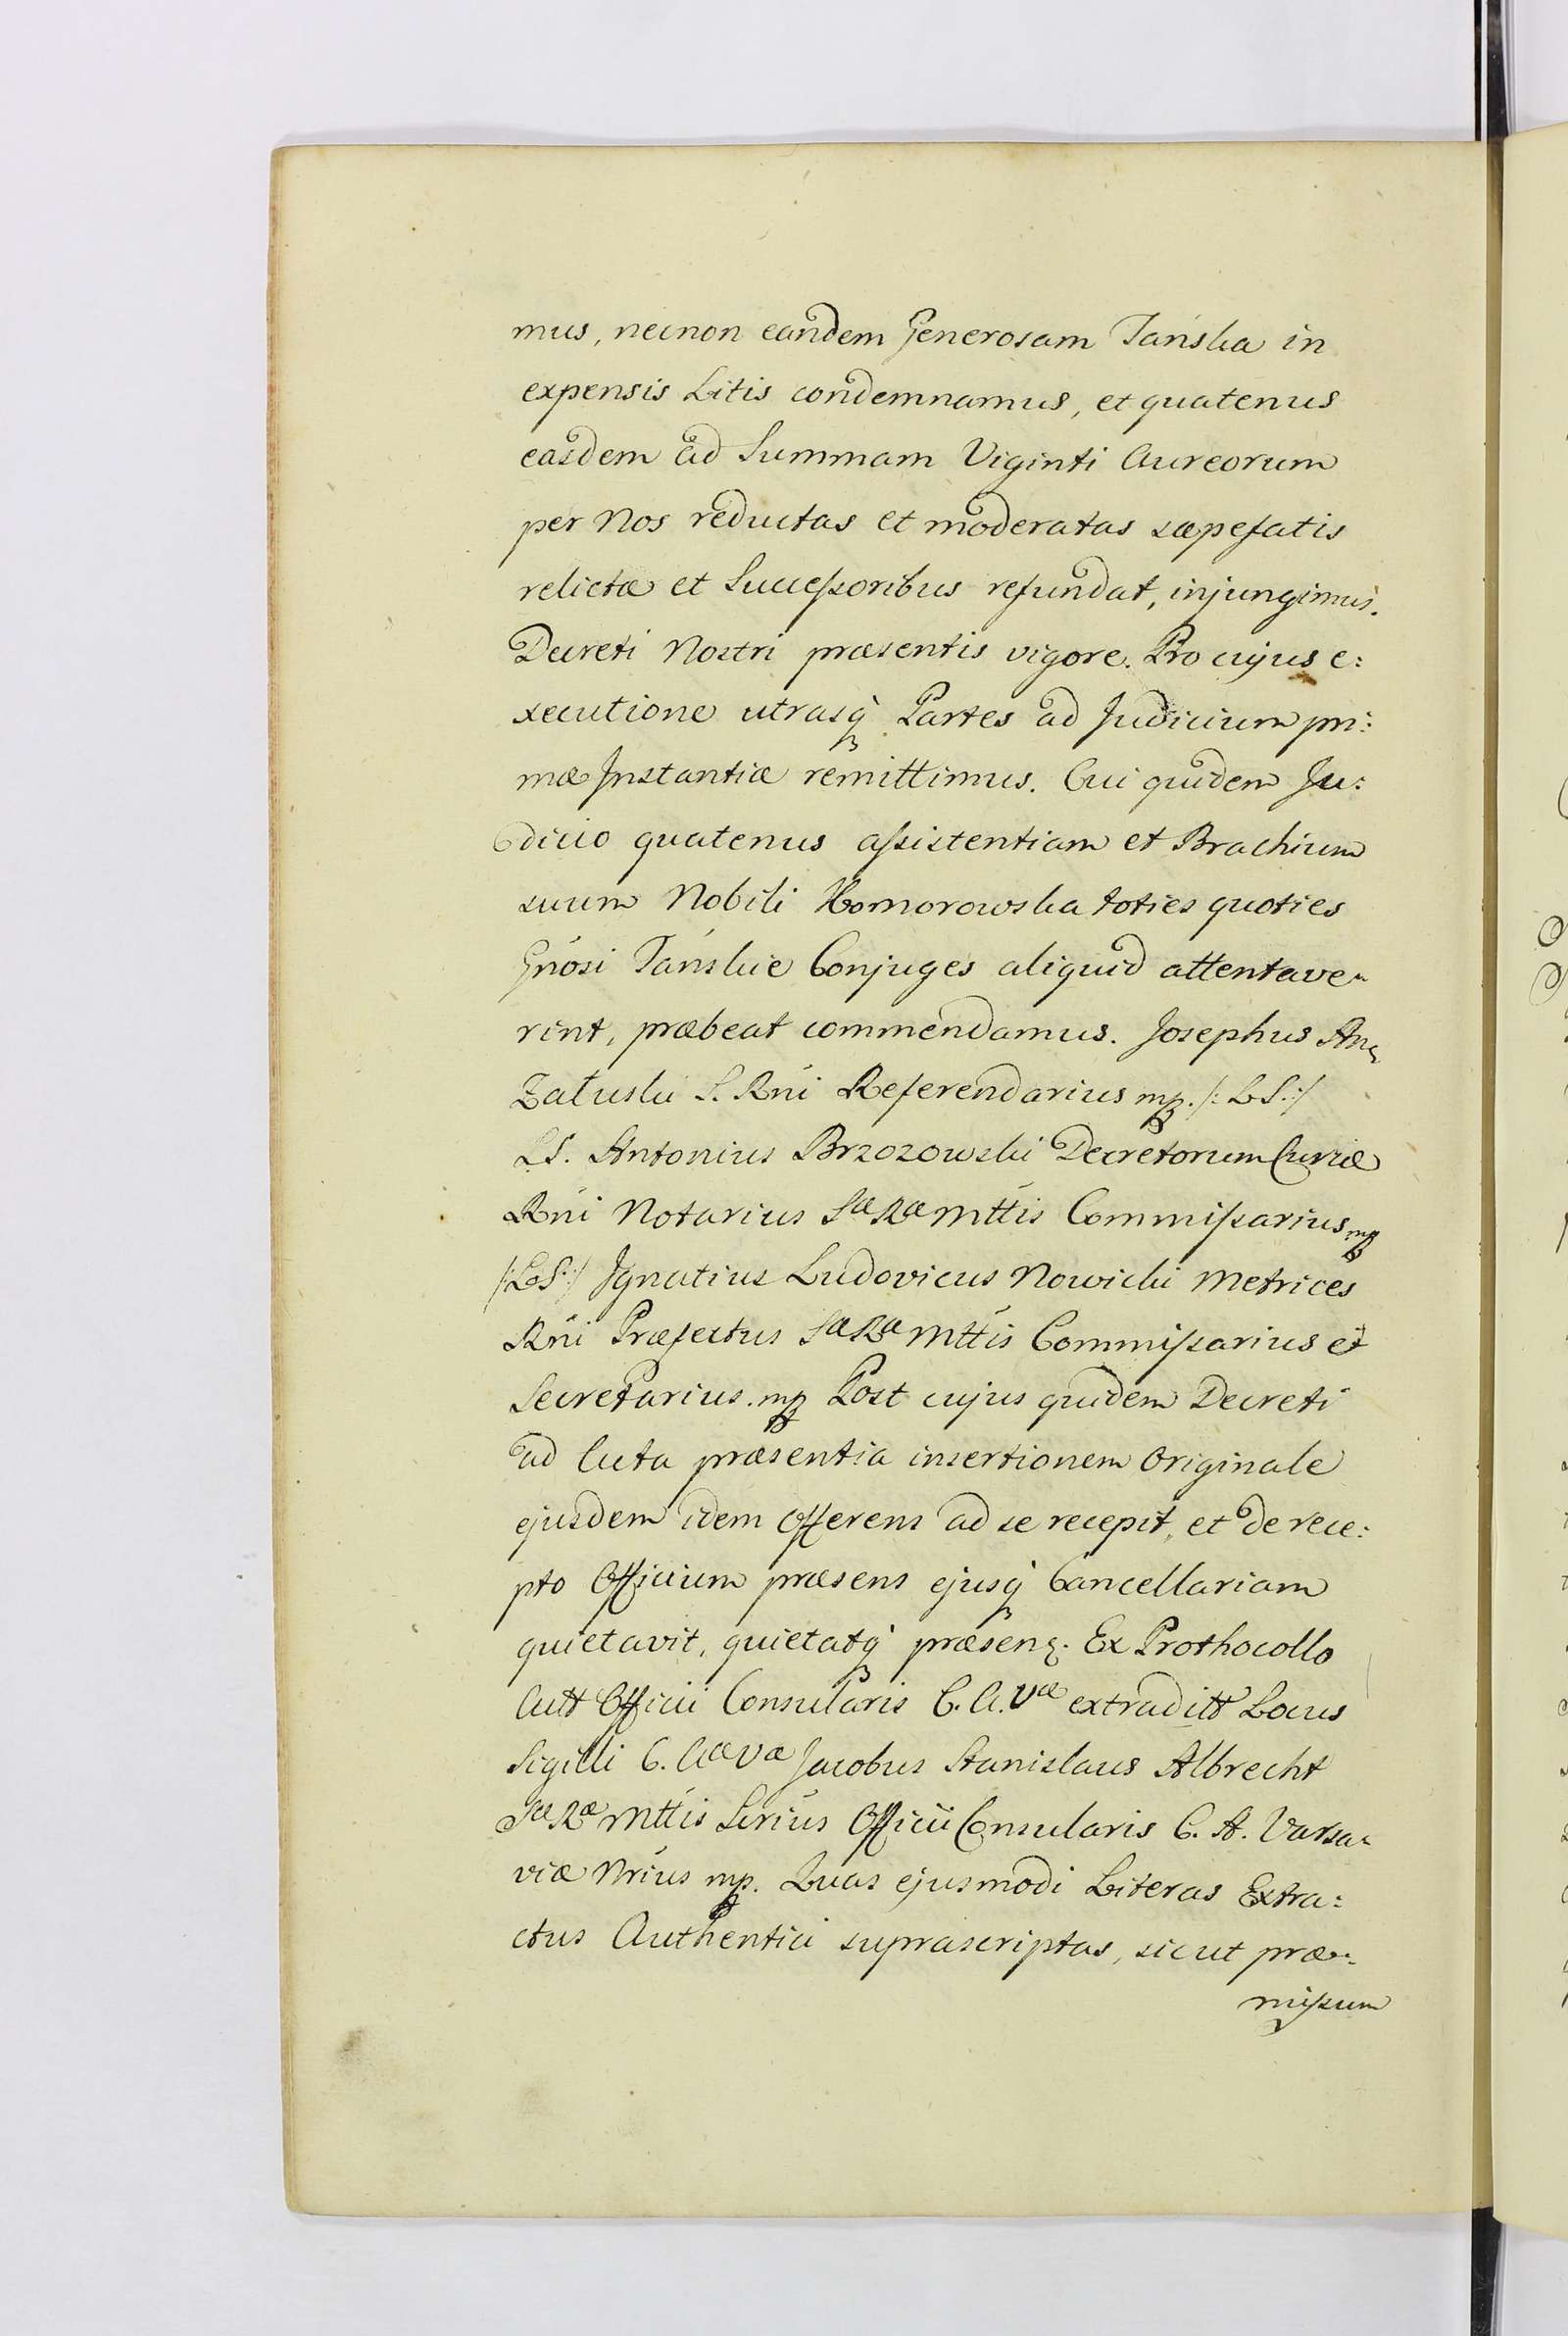 mus, necnon eandem Generosam Tańska in
expensis Litis condemnamus, et quatenus
easdem ad Summam Viginti Aureorum
per Nos reductas et moderatas sæpefatis
relictæ et Successoribus refundat, injungimus.
Decreti Nostri præsentis vigore. Pro cujus e:
xecutione utrasq́ Partes ad Judicium pri:
mæ Instantiæ remittimus. Cui quidem Ju:
dicio quatenus assistentiam et Brachium
suum Nobili Komorowska toties quoties
Gnosi Tańskie Conjuges aliquid attentave-
rint, præbeat commendamus. Josephus An.
Załuski S. Rni Referendarius mp. /:LS:/
LS. Antonius Brzozowski Decretorum Curiæ
Rni Notarius Sæ Ræ Mttis Commissarius mp
/:LS:/ Ignatius Ludovicus Nowicki Metrices
Rni Præfectus Sæ Ræ Mttis Commissarius et
Secretarius. mp Post cujus quidem Decreti
ad Acta præsentia insertionem Originale
ejusdem idem Offerens ad se recepit, et de rece:
pto Officium præsens ejusq́ Cancellariam
quietavit, quietatq́ præsen. Ex Prothocollo
Actt Officii Consularis C. A. Væ extraditt Locus
Sigilli C. Aæ Væ Jacobus Stanislaus Albrecht
Sæ Ræ Mttis Srius Officii Consularis C. A. Varsa-
viæ Nrius mp. Quas ejusmodi Literas Extra:
ctus Authentici suprascriptas, sicut præ-
missum